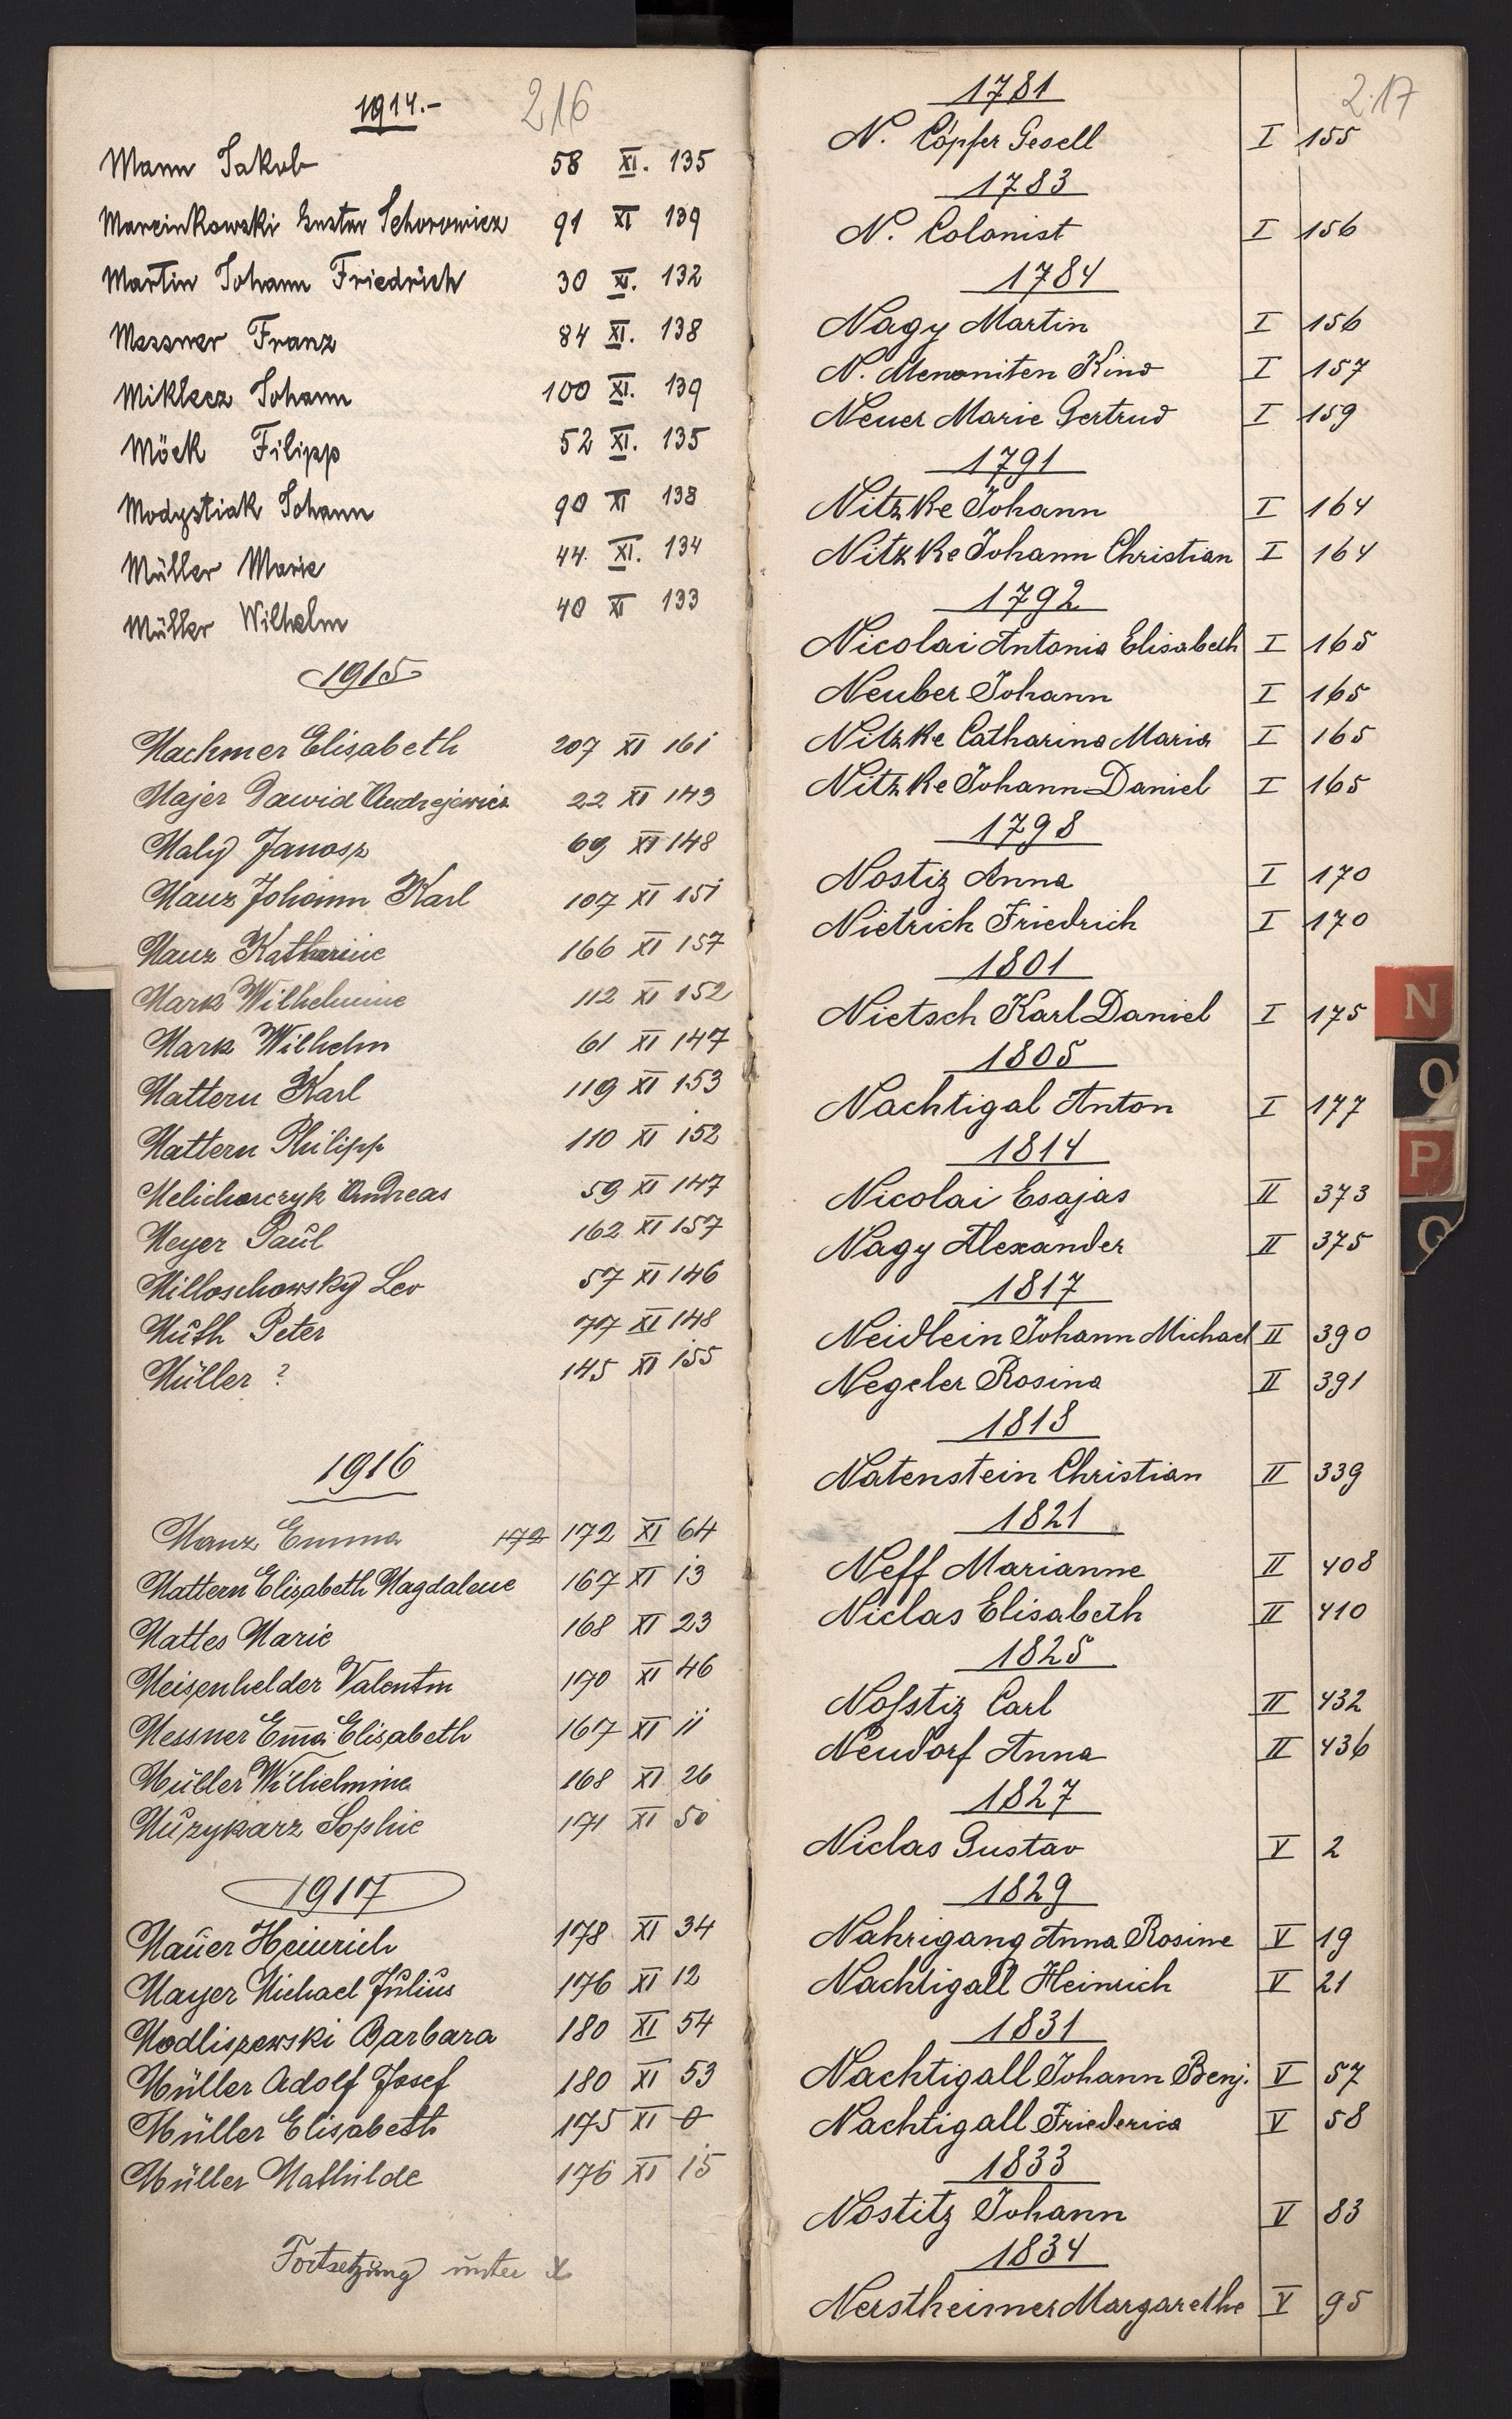 1914.-
216
Mann Jakob 58 XI. 135
Marcinkowski Gustav Schorowicz 91 XI 139
Martin Johann Friedrich 30 XI. 132
Messner Franz 84 XI. 138
Miklecz Johann 100 XI. 139
Möck Filipp 52 XI. 135
Modystiak Johann 90 XI 138
Müller Marie 44. XI. 134
Müller Wilhelm 40 XI 133
1915
Machmer Elisabeth 207 XI 161
Majer Dawid Andrejewicz 22 XI 143
Maly Janosz 69 XI 148
Manz Johann Karl 107 XI 151
Manz Katharine 166 XI 157
Mark Wilhelmine 112 XI 152
Mark Wilhelm 61 XI 147
Mattern Karl 119 XI 153
Mattern Philipp 110 XI 152
Melicharczyk Andreas 59 XI 147
Meyer Paul 162 XI 157
Milloschowsky Leo 57 XI 146
Muth Peter 77 XI 148
Müller ? 145 XI 155
1916
Manz Emma 172 172 XI 64
Mattern Elisabeth Magdalene 167 XI 13
Mattes Marie 168 XI 23
Meisenhelder Valentin 170 XI 46
Messner Em̄a Elisabeth 167 XI 11
Müller Wilhelmine 168 XI 26
Muzykarz Sophie 171 XI 50
1917
Mauer Heinrich 178 XI 34
Mayer Michael Julius 176 XI 12
Modliszewski Barbara 180 XI 54
Müller Adolf Josef 180 XI 53
Müller Elisabeth 175 XI 0
Müller Mathilde 176 XI 15
Fortsetzung unter X
217
1781
N. Töpfer Gesell I 155
1783
N. Colonist I 156
1784
Nagy Martin I 156
N. Menoniten Kind I 157
Neuer Marie Gertrud I 159
1791
Nitzke Johann I 164
Nitzke Johann Christian I 164
1792
Nicolai Antonia Elisabeth I 165
Neuber Johann I 165
Nitzke Catharina Maria I 165
Nitzke Johann Daniel I 165
1798
Nostiz Anna I 170
Nietrich Friedrich I 170
1801
Nietsch Karl Daniel I 175
N
1805
O
Nachtigal Anton I 177
1814
P
Nicolai Esajas II 373
Nagy Alexander II 375
Q
1817
Neidlein Johann Michael II 390
Negeler Rosina II 391
1818
Natenstein Christian II 339
1821
Neff Marianne II 408
Niclas Elisabeth II 410
1825
Noſstiz Carl II 432
Neudorf Anna II 436
1827
Niclas Gustav V 2
1829
Nahrigang Anna Rosine V 19
Nachtigall Heinrich V 21
1831
Nachtigall Johann Benj. V 57
Nachtigall Friederica V 58
1833
Nostitz Johann V 83
1834
Nerstheimer Margarethe V 95